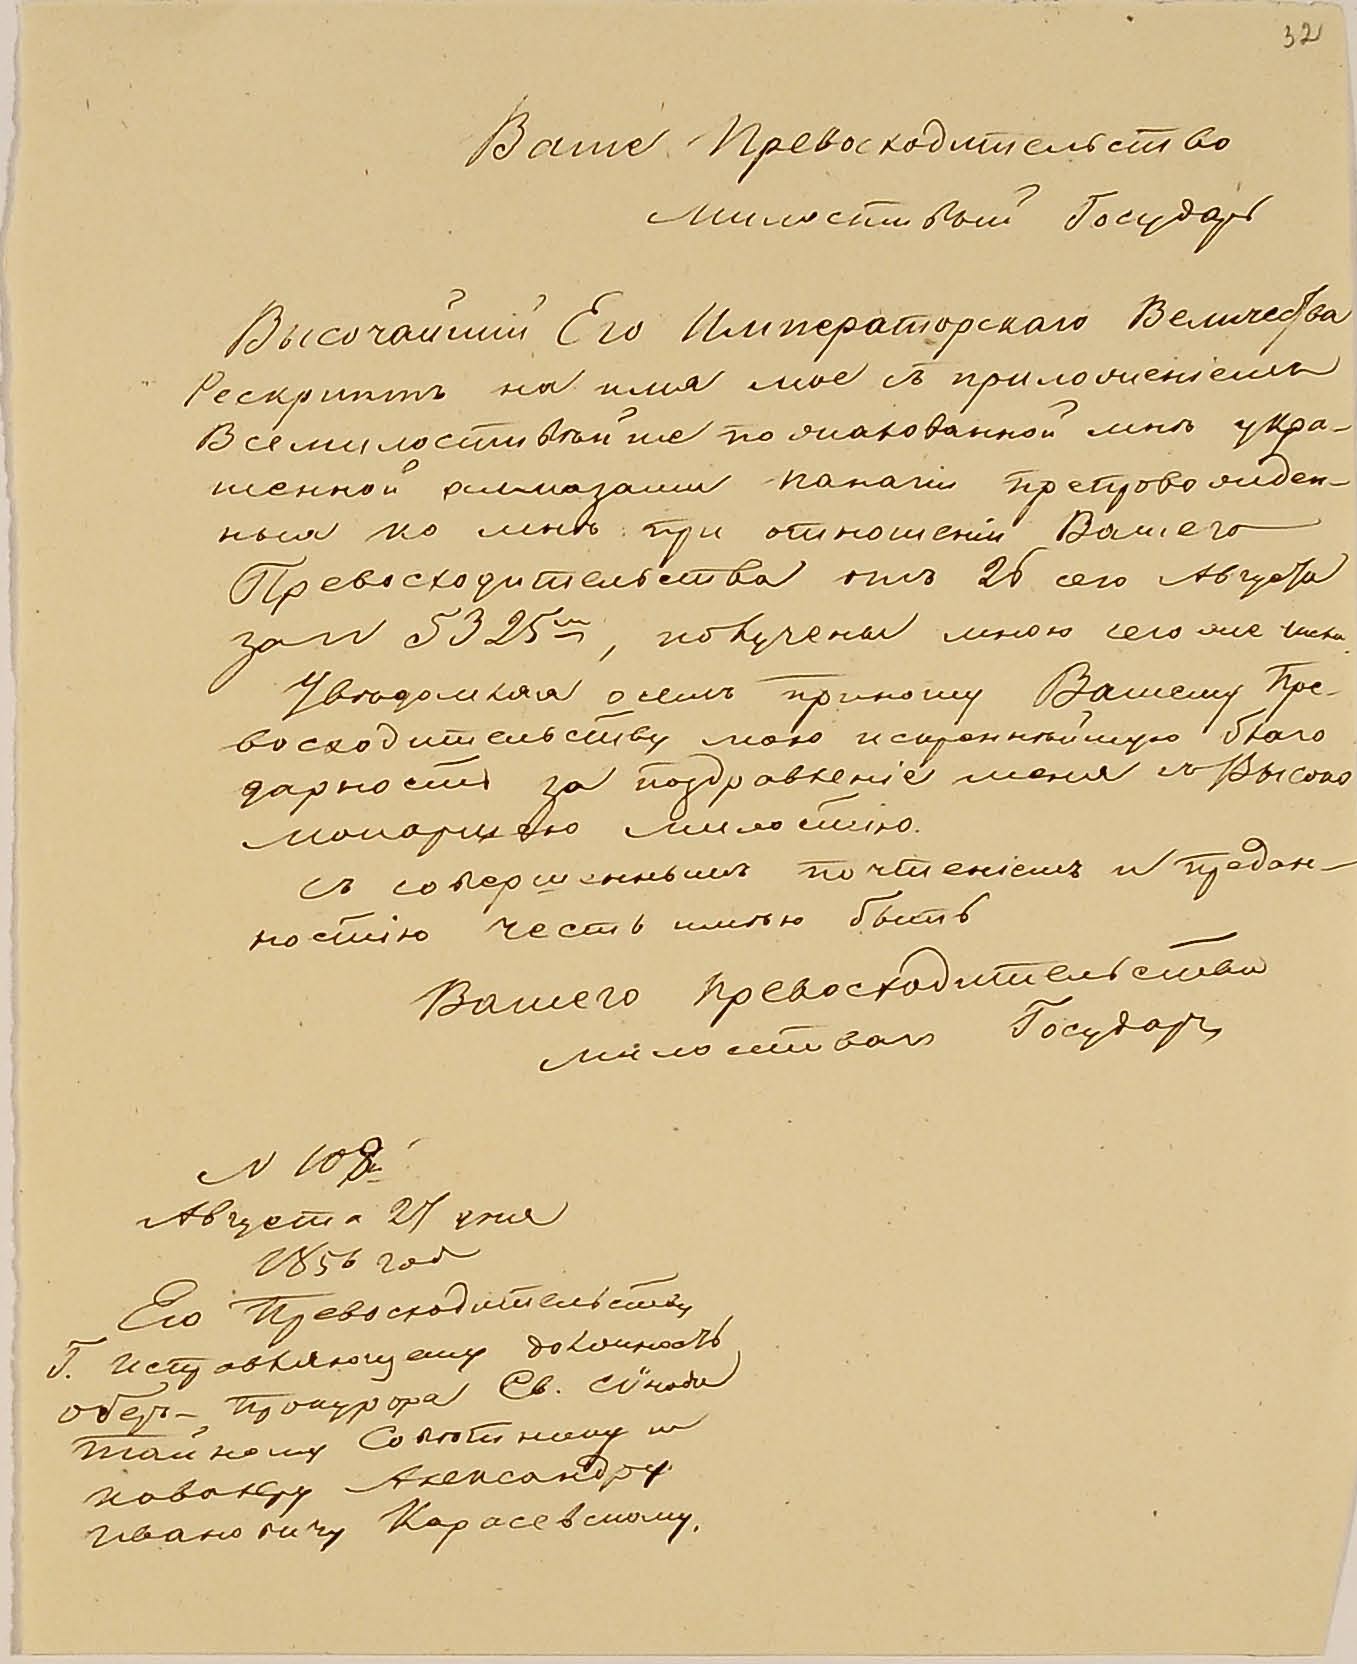 32
Ваше Превосходительство
Милостивый Государь
Высочайший Его Императорскаго Величества
Рескриптъ на имя мое съ приложеніемъ
Всемилостивѣйше пожалованной мнѣ укра-
шенной алмазами панагіи препровожден-
ныя ко мнѣ при отношеніи Вашего
Превосходительства отъ 26 сего Августа
за N 5325м, получены мною сего же числа.
Увѣдомляя о семъ приношу Вашему Пре-
восходительству мою искреннѣйшую благо
дарность за поздравленіе меня съ Высоко
монаршею милостію.
Съ совершеннымъ почтеніемъ и предан-
ностію честь имѣю быть
Вашего Превосходительства
милостивый Государь
N 108м
Августа 27 дня
1856 год
Его Превосходительству
Г. Исправляющему должность
оберъ-Прокурора Св. Сѵнода
тайному Совѣтнику и
кавалеру Александру
Ивановичу Карасевскому.